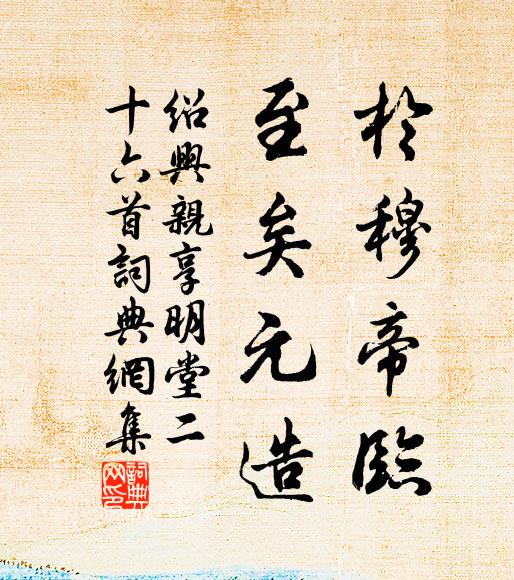 於穆帝臨
至矣元造
紹興親享明堂二
十六首詞典網集
詞典
网印